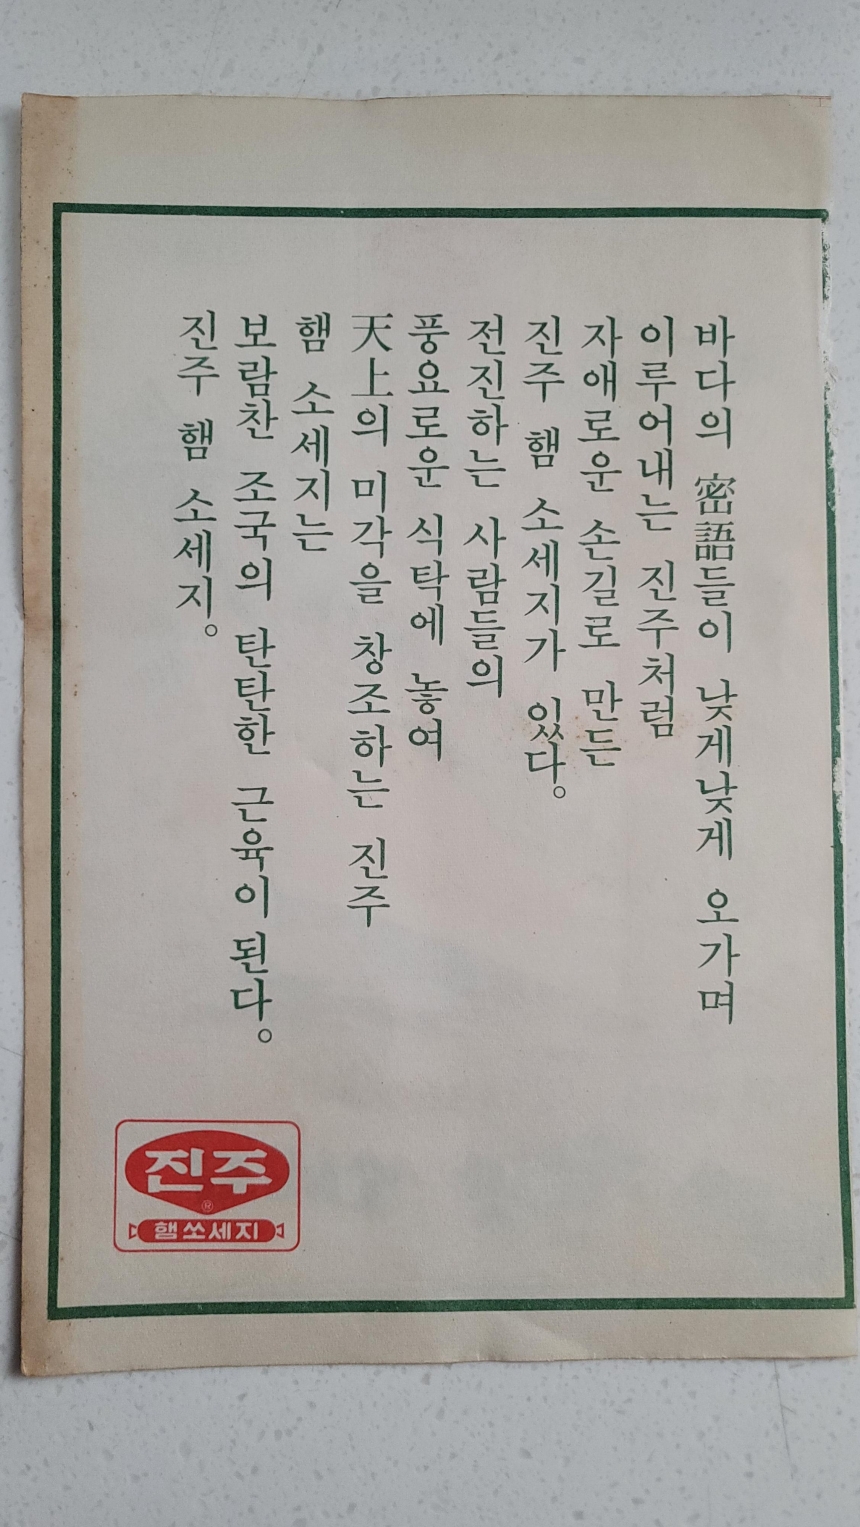 바다의 密語들이 낮게낮게 오가며
이루어내는 진주처럼
자애로운 손길로 만든
진주 햄 소세지가 있다.
전진하는 사람들의
풍요로운 식탁에 놓여
天上의 미각을 창조하는 진주
햄 소세지는
보람찬 조국의 탄탄한 근육이 된다.
진주 햄 소세지.
진주
®
햄쏘세지